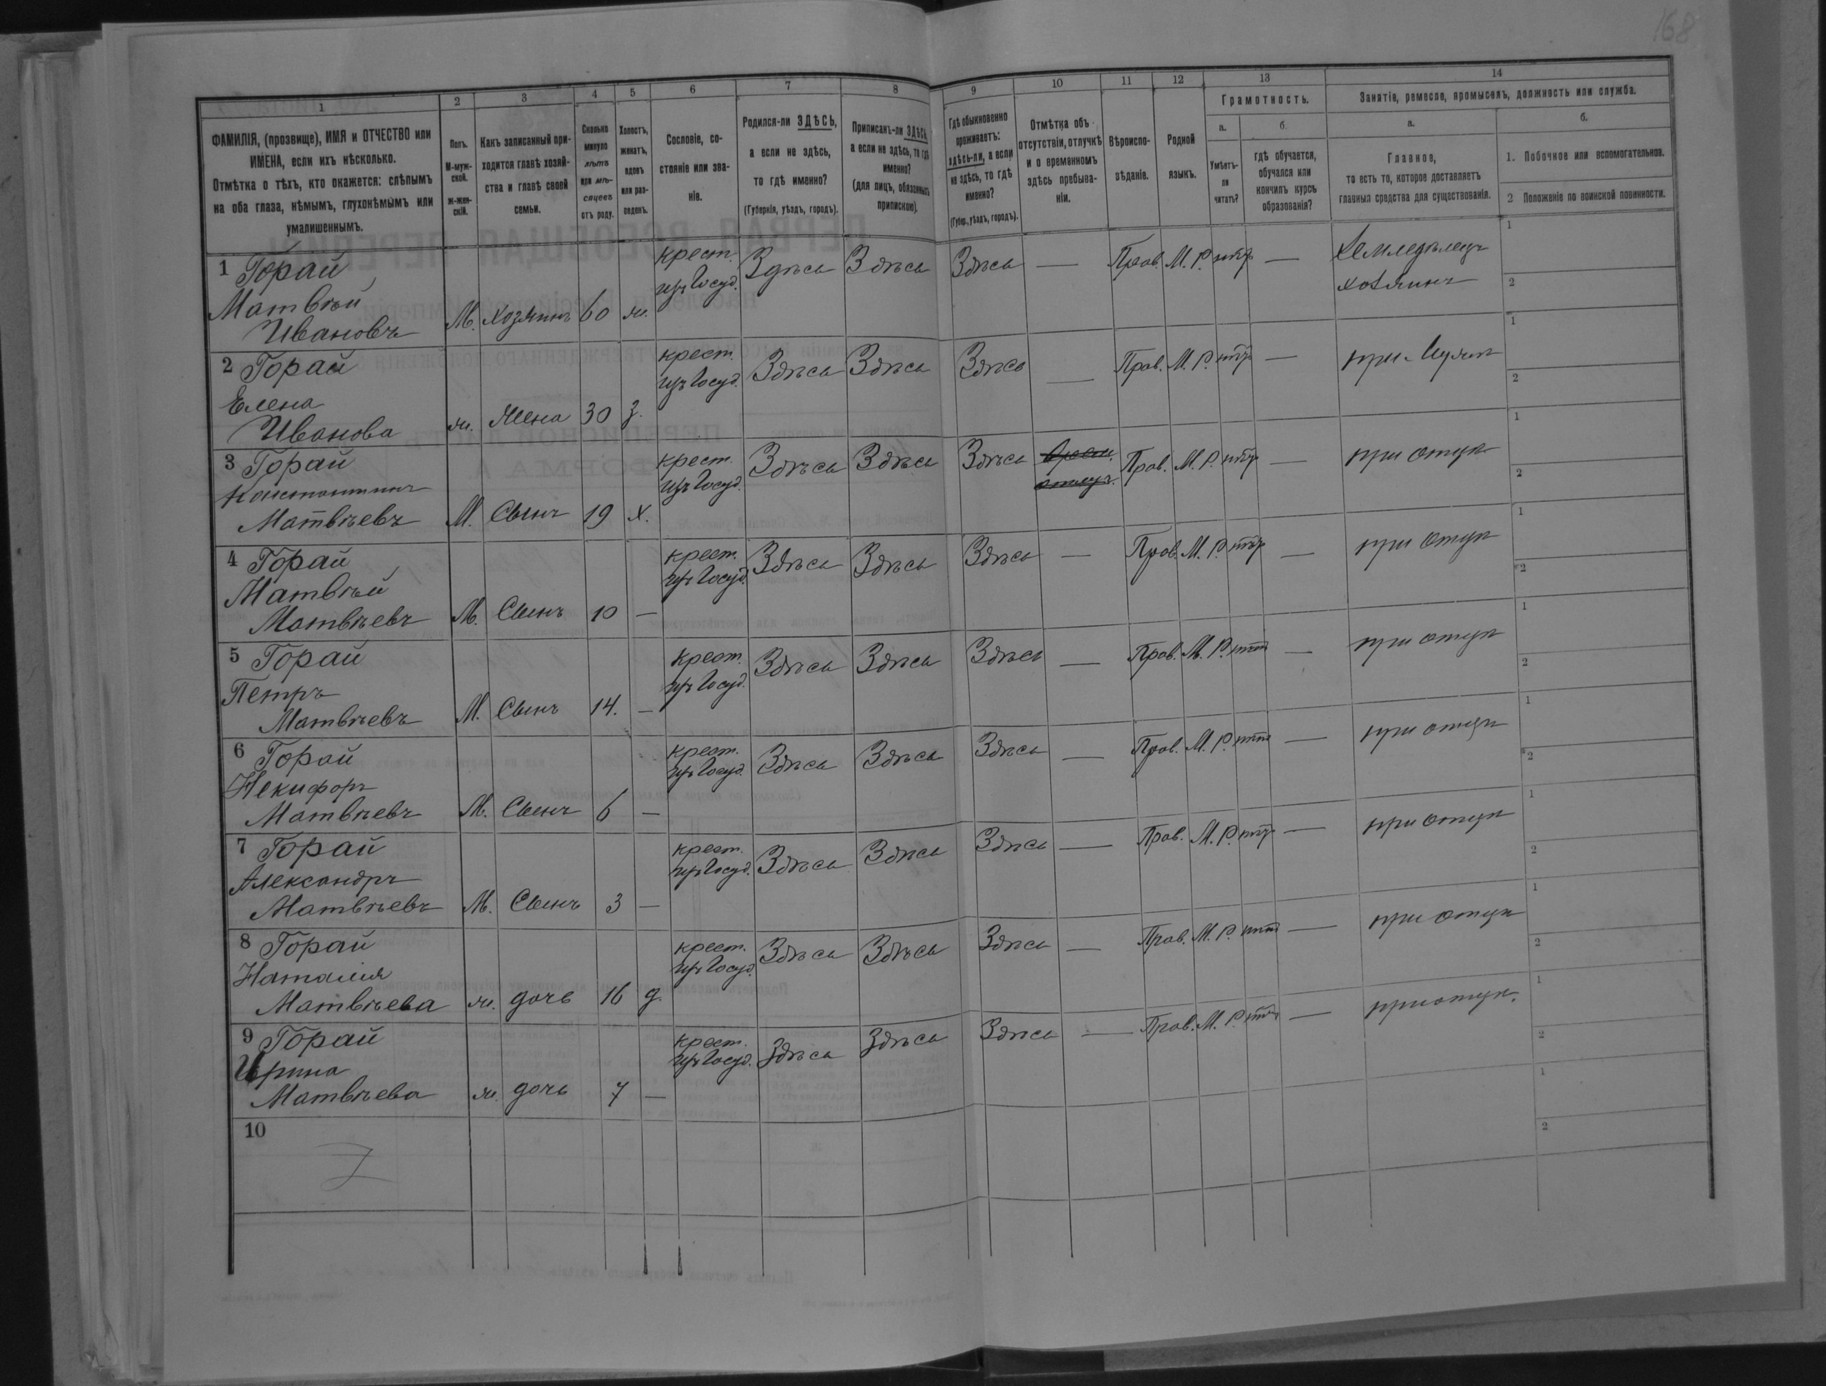 168
1 2 3 4 5 6 7 8 9 10 11 12 13 14
ФАМИЛІЯ, (прозвище), ИМЯ и ОТЧЕСТВО или
ИМЕНА, если ихъ нѣсколько.
Отмѣтка о тѣхъ, кто окажется: слѣпымъ
на оба глаза, нѣмымъ, глухонѣмымъ или
умалишеннымъ.
Полъ.
М-муж-
ской.
Ж-жен-
скій.
Какъ записанный при-
ходится главѣ хозяй-
ства и главѣ своей
семьи.
Сколько
минуло
лѣтъ
или мѣ-
сяцевъ
отъ роду.
Холостъ,
женатъ,
вдовъ
или раз-
веденъ.
Сословіе, со-
стояніе или зва-
ніе.
Родился-ли ЗДѢСЬ,
а если не здѣсь,
то гдѣ именно?
(Губернія, уѣздъ, городъ).
Приписанъ-ли ЗДѢСЬ,
а если не здѣсь, то гдѣ
именно?
(для лицъ, обязанныхъ
припиской).
Гдѣ обыкновенно
проживаетъ:
здѣсь-ли, а если
не здѣсь, то гдѣ
именно?
(Губер., уѣздъ, городъ).
Отмѣтка объ
отсутствіи, отлучкѣ
и о временномъ
здѣсь пребыва-
ніи.
Вѣроиспо-
вѣданіе.
Родной
языкъ.
Грамотность.
а.
Умѣетъ-
ли
читать?
б.
гдѣ обучается,
обучался или
кончилъ курсъ
образованія?
Занятіе, ремесло, промыселъ, должность или служба.
а.
Главное,
то есть то, которое доставляетъ
главныя средства для существованія.
б.
1. Побочное или вспомогательное.
2 Положеніе по воинской повинности.
1 Горай
Матвѣй
Ивановъ
М. хозяинъ 60 ж.
крест.
изъ Госуд.
Здѣсь Здѣсь Здѣсь — Прав. М. Р. нѣтъ —
Земледѣлецъ
хозяинъ
1
2
2 Горай
Елена
Иванова
ж. Жена 30 з.
крест.
изъ Госуд.
Здѣсь Здѣсь Здѣсь — Прав. М. Р. нѣтъ — при мужѣ
1
2
3 Горай
Константинъ
Матвѣевъ
М. Сынъ 19 х.
крест.
изъ Госуд.
Здѣсь Здѣсь Здѣсь Прав. М. Р. нѣтъ — при отцѣ
1
2
4 Горай
Матвѣй
Матвѣевъ
М. Сынъ 10 —
крест.
изъ Госуд.
Здѣсь Здѣсь Здѣсь — Прав. М. Р. нѣтъ — при отцѣ
1
2
5 Горай
Петръ
Матвѣевъ
М. Сынъ 14. —
крест.
изъ Госуд.
Здѣсь Здѣсь Здѣсь — Прав. М. Р. нѣтъ — при отцѣ
1
2
6 Горай
Некифоръ
Матвѣевъ
М. Сынъ 6 —
крест.
изъ Госуд.
Здѣсь Здѣсь Здѣсь — Прав. М. Р. нѣтъ — при отцѣ
1
2
7 Горай
Александръ
Матвѣевъ
М. Сынъ 3 —
крест.
изъ Госуд.
Здѣсь Здѣсь Здѣсь — Прав. М. Р. нѣтъ — при отцѣ
1
2
8 Горай
Наталія
Матвѣева
ж. дочь 16 д.
крест.
изъ Госуд.
Здѣсь Здѣсь Здѣсь — Прав. М. Р. нѣтъ — при отцѣ
1
2
9 Горай
Ирина
Матвѣева
ж. дочь 7 —
крест.
изъ Госуд.
Здѣсь Здѣсь Здѣсь — Прав. М. Р. нѣтъ — при отцѣ.
1
2
10
1
2